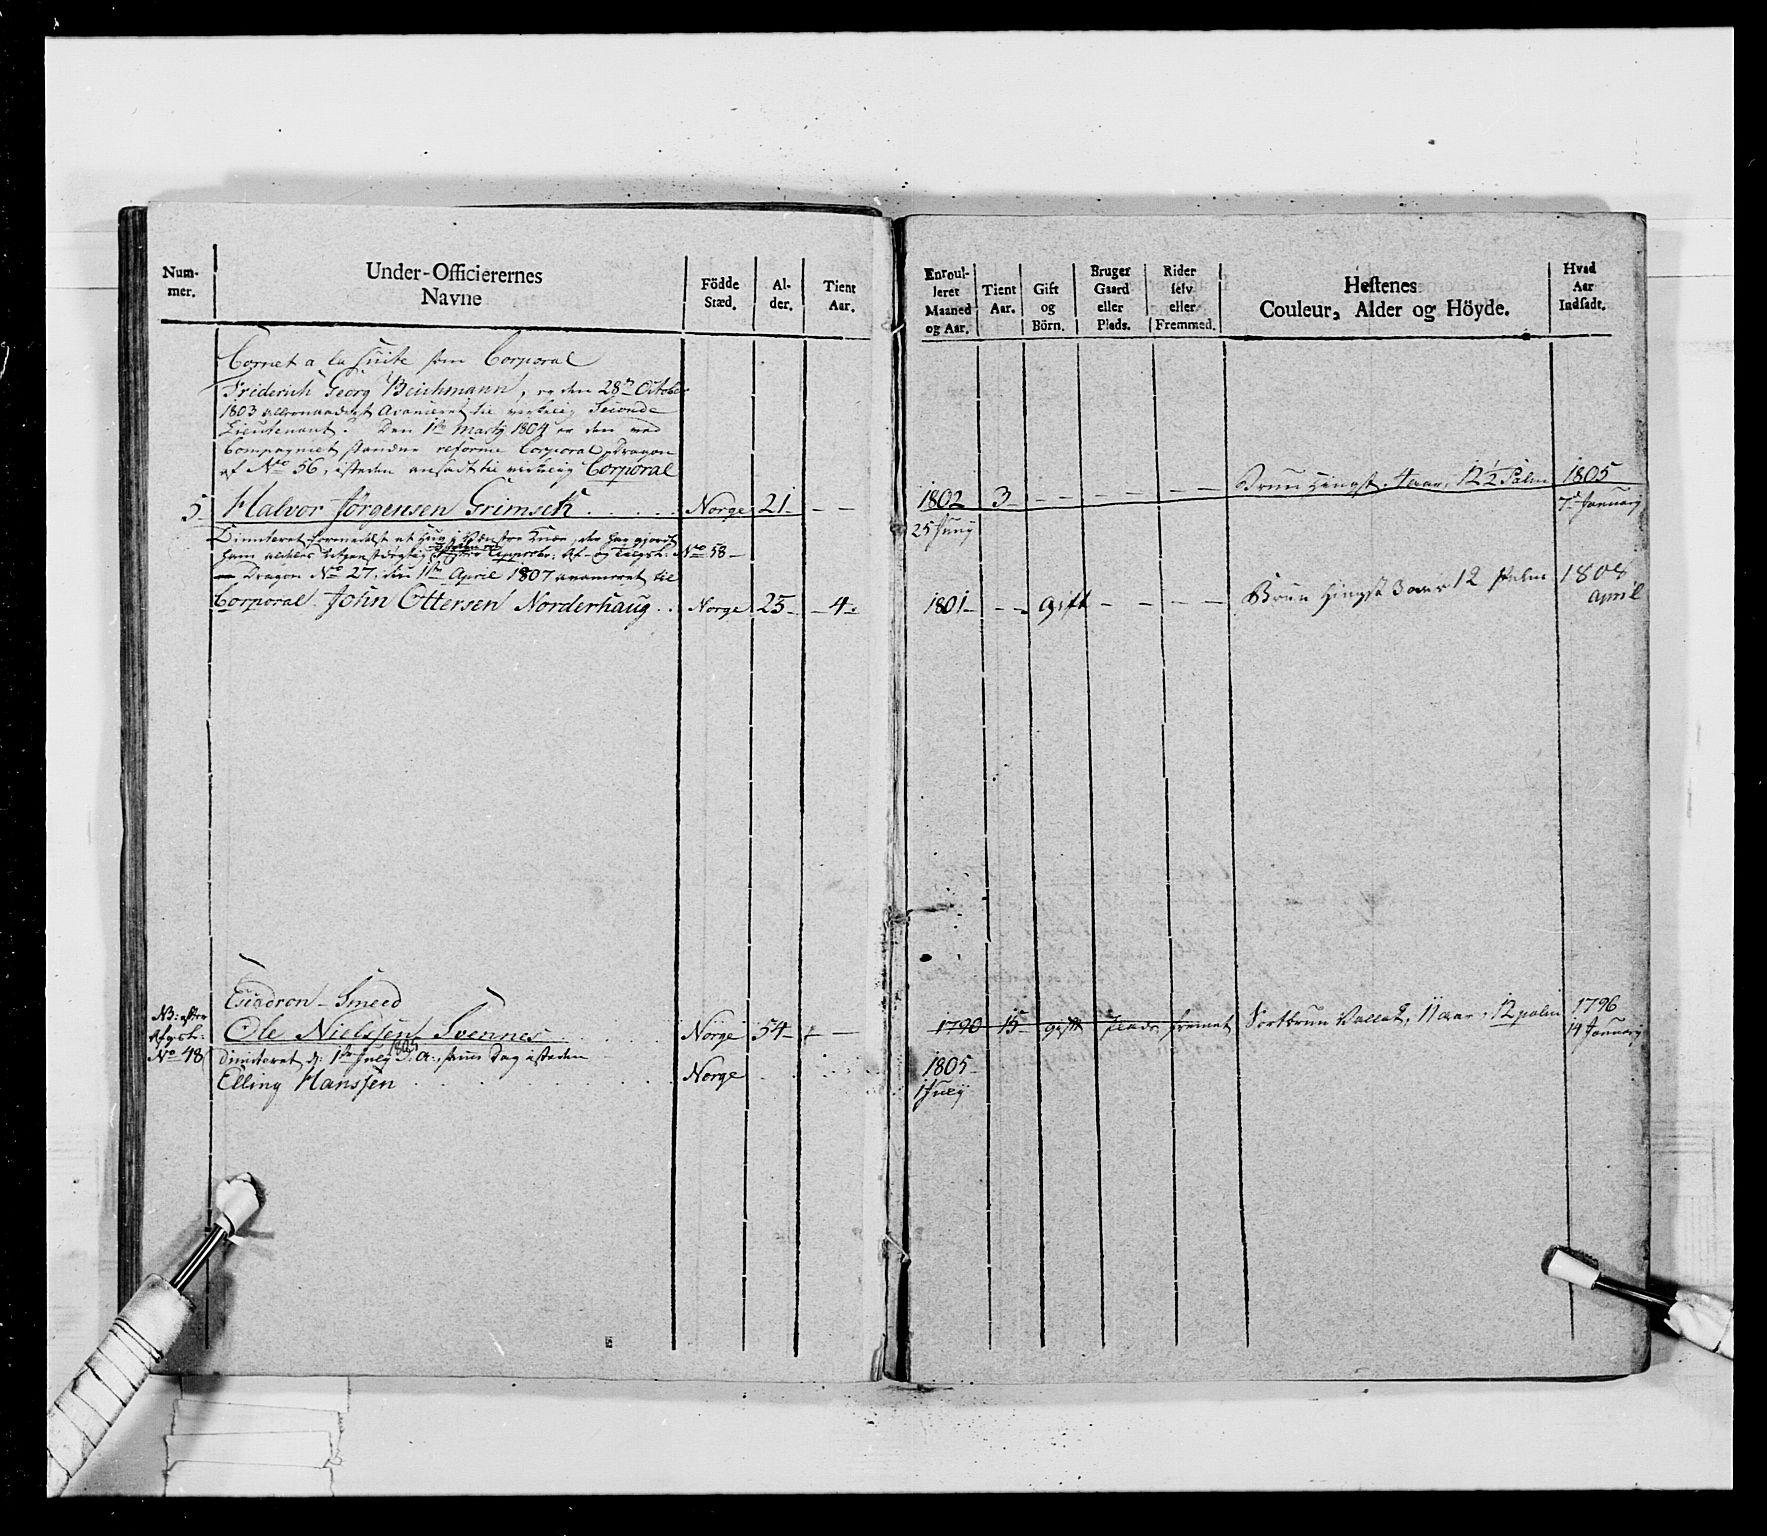 Num-
mer.
Under-Officierernes
Navne
Födde
Stæd.
Al-
der.
Tient
Aar.
Enroul-
leret
Maaned
og Aar.
Tient
Aar.
Gift
og
Börn.
Bruger
Gaard
eller
Plads.
Rider
selv
eller
Fremmed.
Hestenes
Couleur, Alder og Höyde.
Hvad
Aar
Indsadt.
Cornet a la Suite som Corporal
Friderich Georg Beichmann, er den 28de October
1803 allernaadigst Avanceret til virkelig Seconde
Lieutenant. Den 1te Martij 1804 er den ved
Compagniet standne reforme Corporal, Dragon
af No 56, isteden ansadt til virkelig Corporal
5. Halvor Jörgensen Grimseth Norge 21 - - 1802 3 - - - - Bruun Hingst. 4 aar, 12 1/2 Palm 1805
25 Junij
7de Januarij
Dimiteret formedelst et Hug i Venstre Knæe, der har gjordt
ham aldeles utjenstdygtig Approbr: Af- og Tilgsl. No 58
Dragon No 27, den 1te April 1807 avanceret til
Corporal. John Ottersen Norderhaug Norge 25 - 4 - 1801 - - Gift - - - Bruun Hingst 3 aar 12 Palm 1808
April
Escadron-Smeed
NB: efter
Afgsl:
No 48
Ole Nielssen Svennes Norge 54 - - 1790 15 gift Plads fremet Sortbrun Vallak, 11 aar, 12 palm 1796
14 Januarij
Dimiteret d: 1te Julij 1805 d. A., samme Dag isteden
Elling Hanssen Norge 1805
1 Julij